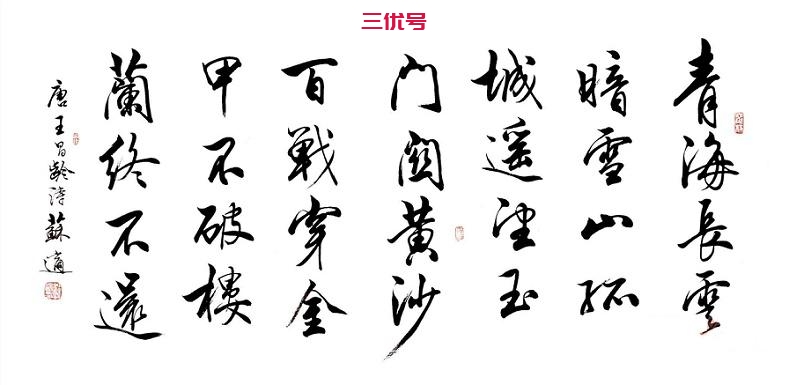 三优号
青海長雲
暗雪山孤
城遥望玉
門関黄沙
百戦穿金
甲不破樓
蘭終不還
唐王昌齡詩蘇適